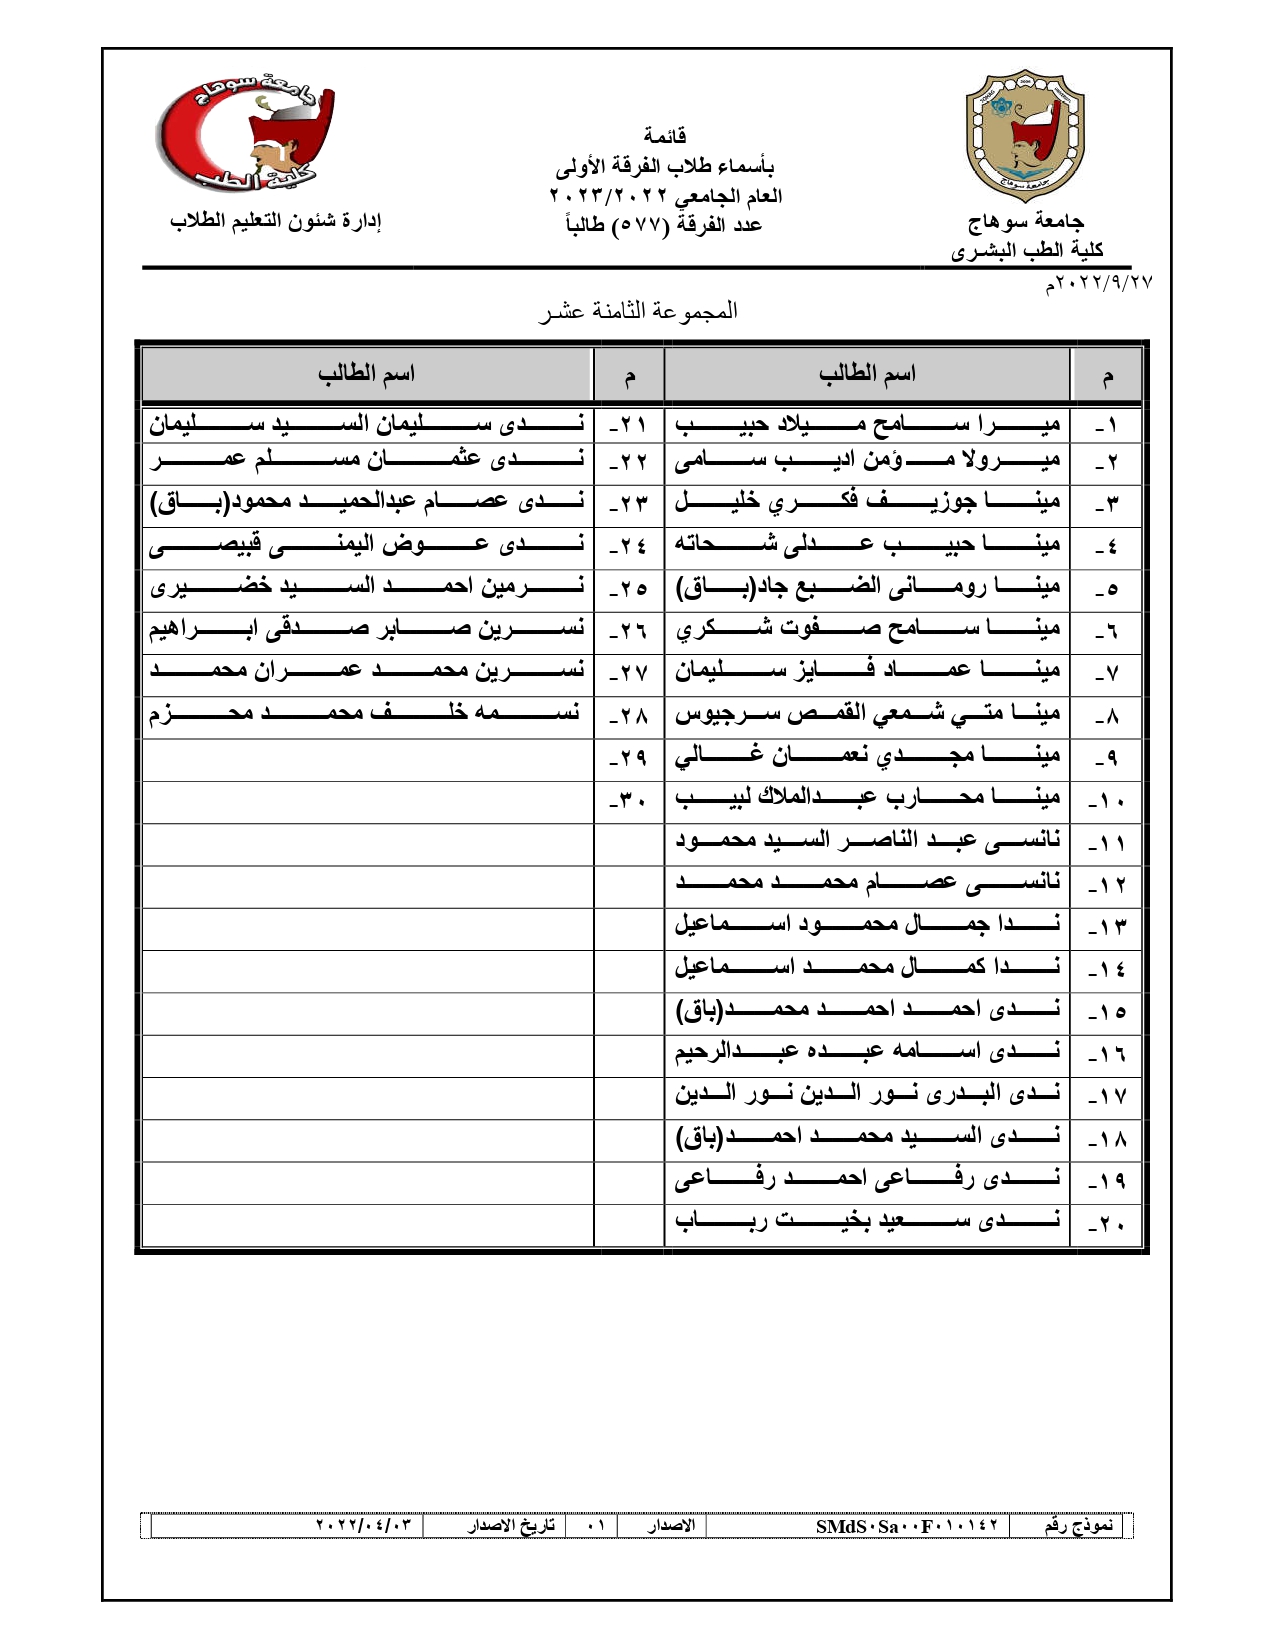 جامعة سوهاج
كلية الطب
إدارة شئون التعليم الطلاب
قائمة
بأسماء طلاب الفرقة الأولى
العام الجامعي ٢٠٢٣/٢٠٢٢
عدد الفرقة (٥٧٧) طالباً
جامعة سوهاج
جامعة سوهاج
كلية الطب البشرى
٢٠٢٢/٩/٢٧م
المجموعة الثامنة عشر
م اسم الطالب م اسم الطالب
١- ميرا سامح ميلاد حبيب ٢١- ندى سليمان السيد سليمان
٢- ميرولا مؤمن اديب سامى ٢٢- ندى عثمان مسلم عمر
٣- مينا جوزيف فكري خليل ٢٣- ندى عصام عبدالحميد محمود(باق)
٤- مينا حبيب عدلى شحاته ٢٤- ندى عوض اليمنى قبيصى
٥- مينا رومانى الضبع جاد(باق) ٢٥- نرمين احمد السيد خضيرى
٦- مينا سامح صفوت شكري ٢٦- نسرين صابر صدقى ابراهيم
٧- مينا عماد فايز سليمان ٢٧- نسرين محمد عمران محمد
٨- مينا متي شمعي القمص سرجيوس ٢٨- نسمه خلف محمد محزم
٩- مينا مجدي نعمان غالي ٢٩-
١٠- مينا محارب عبدالملاك لبيب ٣٠-
١١- نانسى عبد الناصر السيد محمود
١٢- نانسى عصام محمد محمد
١٣- ندا جمال محمود اسماعيل
١٤- ندا كمال محمد اسماعيل
١٥- ندى احمد احمد محمد(باق)
١٦- ندى اسامه عبده عبدالرحيم
١٧- ندى البدرى نور الدين نور الدين
١٨- ندى السيد محمد احمد(باق)
١٩- ندى رفاعى احمد رفاعى
٢٠- ندى سعيد بخيت رباب
نموذج رقم SMdS٠Sa٠٠F٠١٠١٤٢ الاصدار ٠١ تاريخ الاصدار ٢٠٢٢/٠٤/٠٣